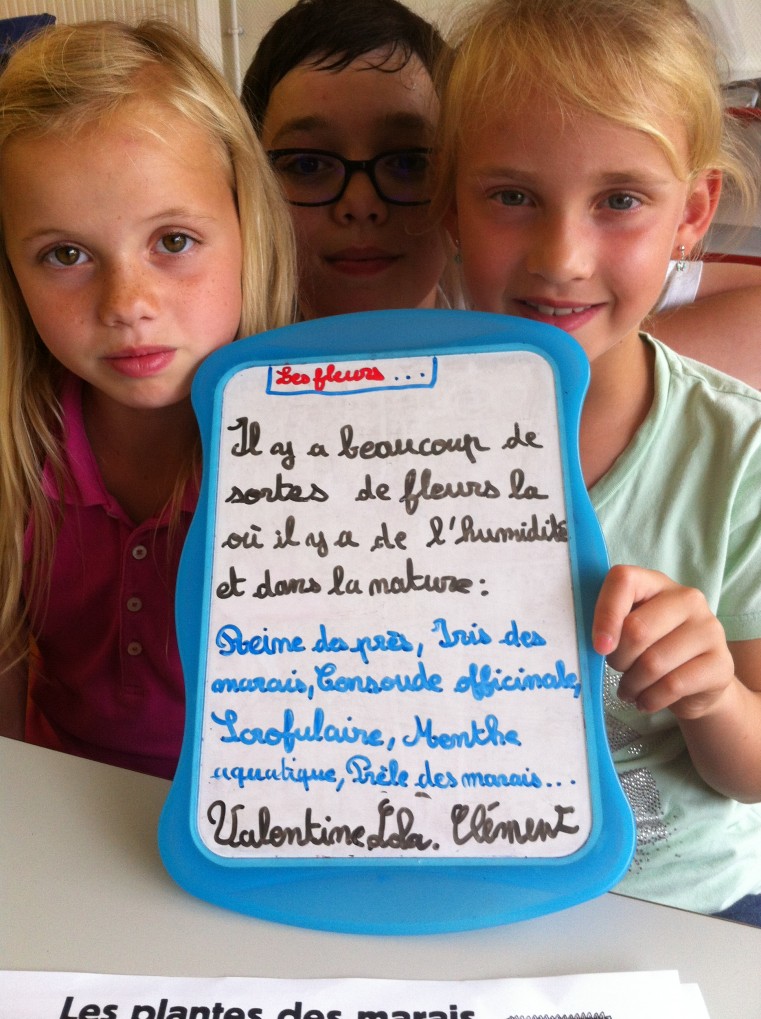 Les fleurs ...
Il y a beaucoup de
sortes de fleurs la
où il y a de l'humidité
et dans la nature :
Reine des près, Iris des
marais, Consoude officinale,
Scrofulaire, Menthe
aquatique, Prêle des marais...
Valentine Lola. Clément
Les plantes des marais